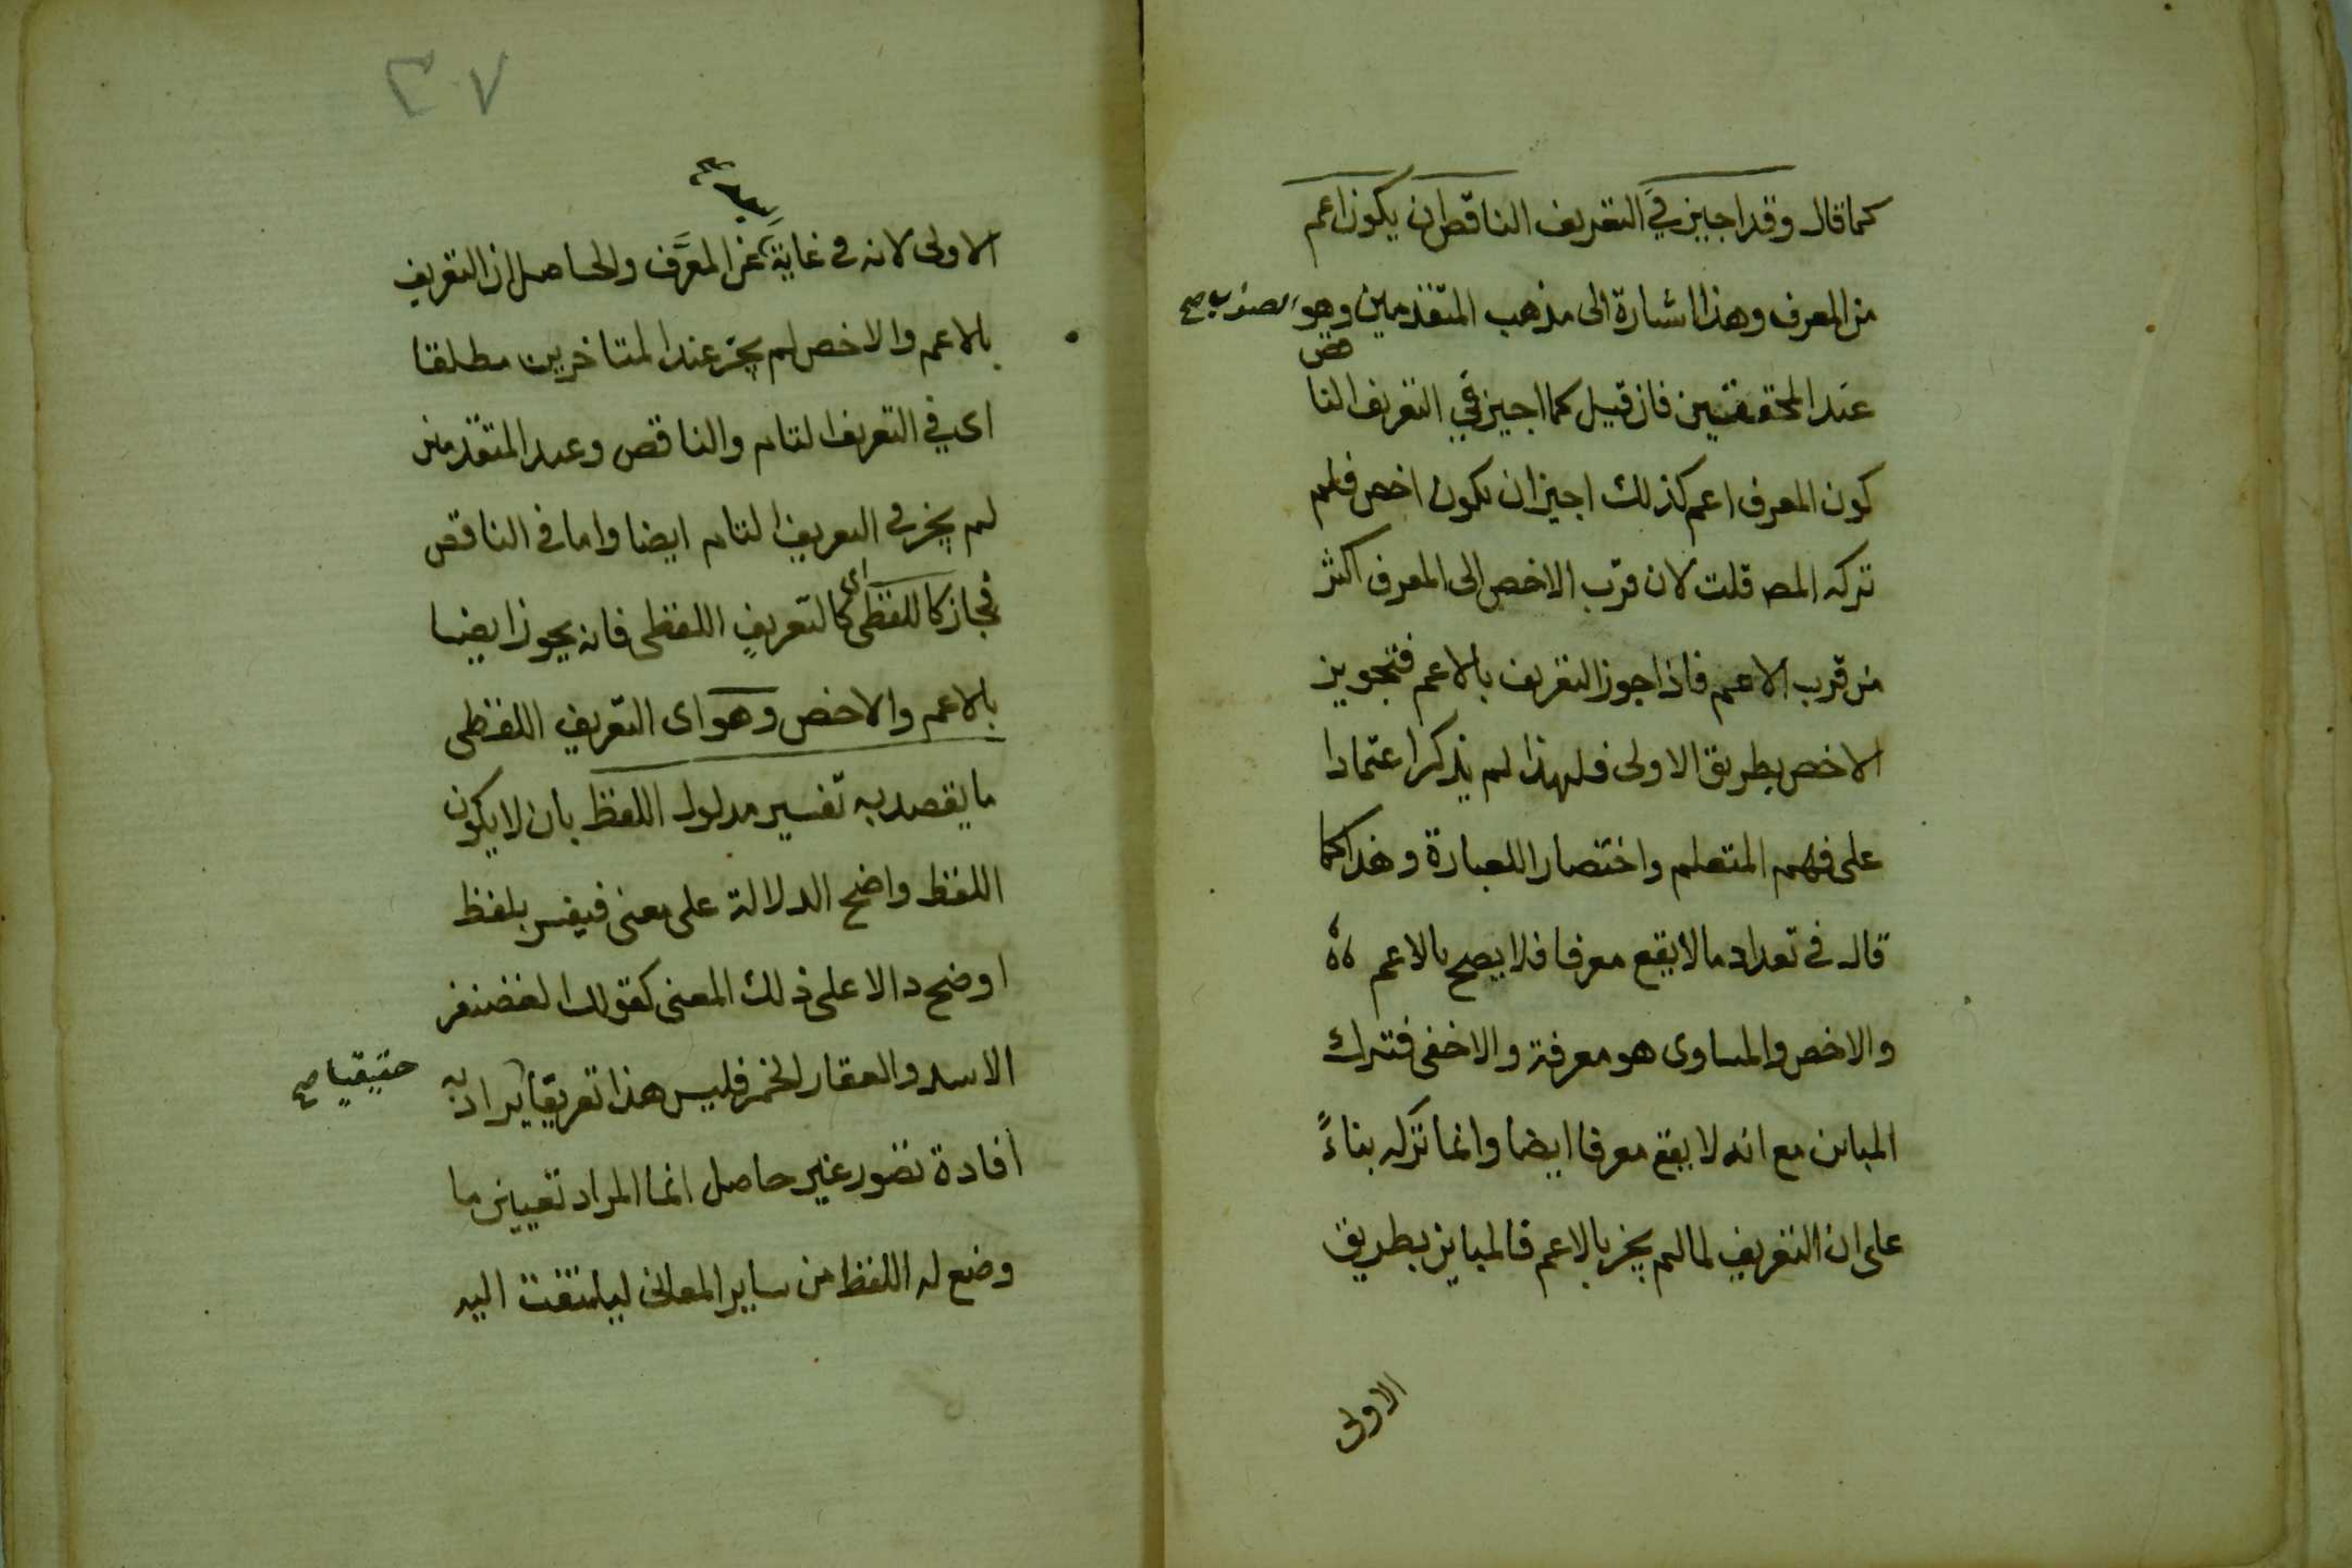 كما قال وقد اجيز في التعريف الناقص ان يكون اعم
من المعرف وهذا اشارة الى مذهب المتقدمين وهو الصواب صح
عند المحققين فان قيل كما اجيز في التعريف النا
قص
كون المعرف اعم كذلك اجيز ان يكون اخص فلم
تركه المص قلت لان قرب الاخص الى المعرف اكثر
من قرب الاعم فاذا جوز التعريف بالاعم فتجويز
الاخص بطريق الاولى فلهذا لم يذكر اعتمادا
على فهم المتعلم واختصارا للعبارة وهذا كما
قال في تعداد ما لا يقع معرفا فلا يصح بالاعم
والاخص والمساوى هو معرفة والاخفى فترك
المباين مع انه لا يقع معرفا ايضا وانما تركه بناءً
على ان التعريف لما لم يجز بالاعم فالمباين بطريق
الاولى
٣٧
الاولى لانه في غاية عن المعرَّف والحاصل ان التعريف
بالاعم والاخص لم يجز عند المتاخرين مطلقا
اى في التعريف التام والناقص وعند المتقدمين
لم يجز في التعريف التام ايضا واما في الناقص
فجاز كاللفظى اى كالتعريف اللفظى فانه يجوز ايضا
بالاعم والاخص وهو اى التعريف اللفظى
ما يقصد به تفسير مدلول اللفظ بان لا يكون
اللفظ واضح الدلالة على معنى فيفسر بلفظ
اوضح دالا على ذلك المعنى كقولك الغضنفر
الاسد والعقار الخمر فليس هذا تعريفا يراد به
حقيقيا صح
افادة تصور غير حاصل انما المراد تعيين ما
وضع له اللفظ من ساير المعانى ليلتفت اليه